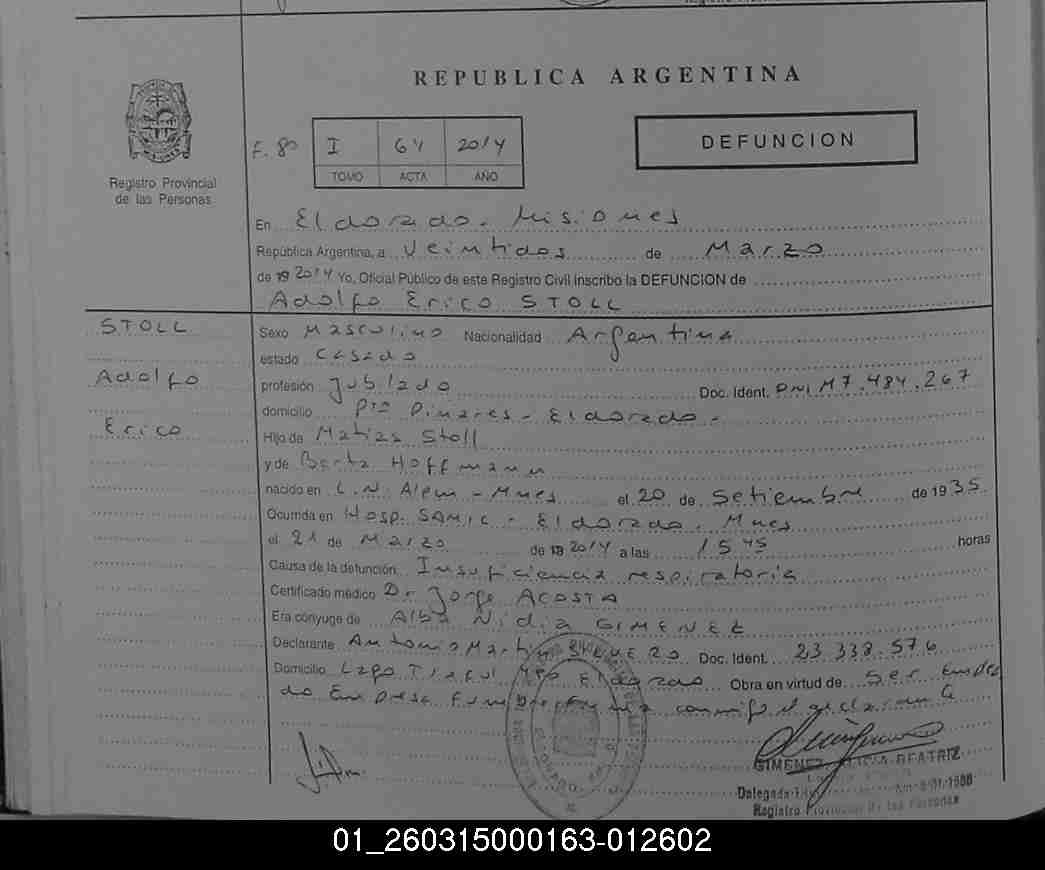 REPUBLICA ARGENTINA
Registro Provincial
de las Personas
F. 80
I 64 2014
TOMO ACTA AÑO
DEFUNCION
En Eldorado. Misiones
República Argentina, a Veintidos de Marzo
de 19 2014 Yo, Oficial Público de este Registro Civil inscribo la DEFUNCION de
Adolfo Erico STOLL
STOLL
Adolfo
Erico
Sexo Masculino Nacionalidad Argentina
estado Casado
profesión Jubilado Doc. Ident. DNI M7.484.267
domicilio Pto Pinares - Eldorado -
Hijo de Matias Stoll
y de Berta Hoffmann
nacido en L.N. Alem - Mnes el 20 de Setiembre de 1935
Ocurrida en Hosp. SAMIC - Eldorado. Mnes
el 21 de Marzo de 19 2014 a las 15 45 horas
Causa de la defunción Insuficiencia respiratoria
Certificado médico Dr Jorge ACOSTA
Era cónyuge de Alba Nidia GIMENEZ
Declarante Antonio Martin Doc. Ident. 23 338.576
Domicilio Lago Eldorado Obra en virtud de Ser Emplea
do Empresa Funebre firma conmigo el declarante
GIMENEZ BEATRIZ
Delegada
Registro Provincial de las Personas
01_260315000163-012602